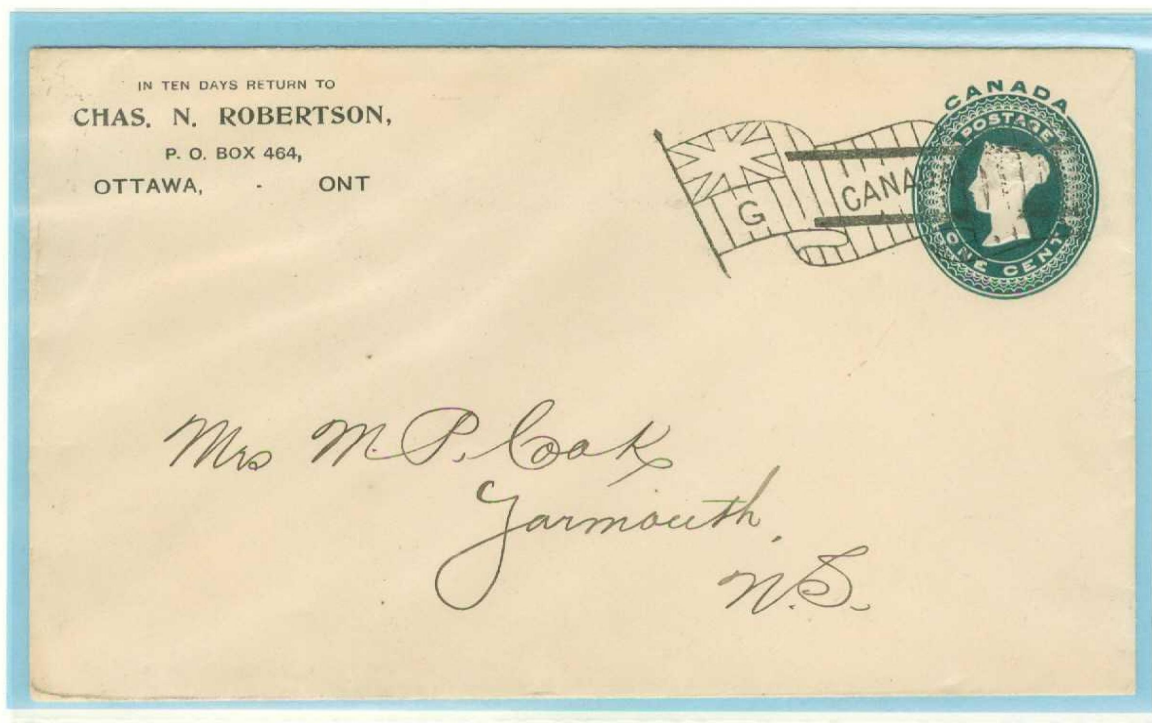 IN TEN DAYS RETURN TO
CHAS. N. ROBERTSON,
P. O. BOX 464,
OTTAWA, - ONT
G
CANA
CANADA
POSTAGE
ONE CENT
Mrs M. P. Cook
Yarmouth,
N.S.